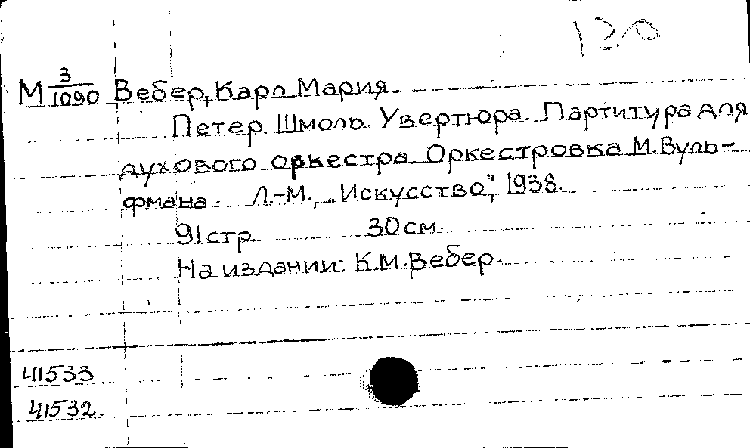 120
М 3/1090 Вебер, Карл Мария.
Петер Шмоль. Увертюра. Партитура для
духового оркестра. Оркестровка М. Вуль-
фмана. Л.-М., "Искусство", 1938.
91 стр. 30 см.
На издании: К.М. Вебер.
41533
41532.